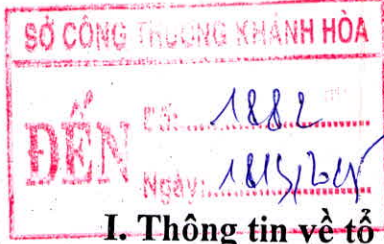 SỞ CÔNG THƯƠNG KHÁNH HÒA
ĐẾN
Số: 1882
Ngày:
I. Thông tin về tổ